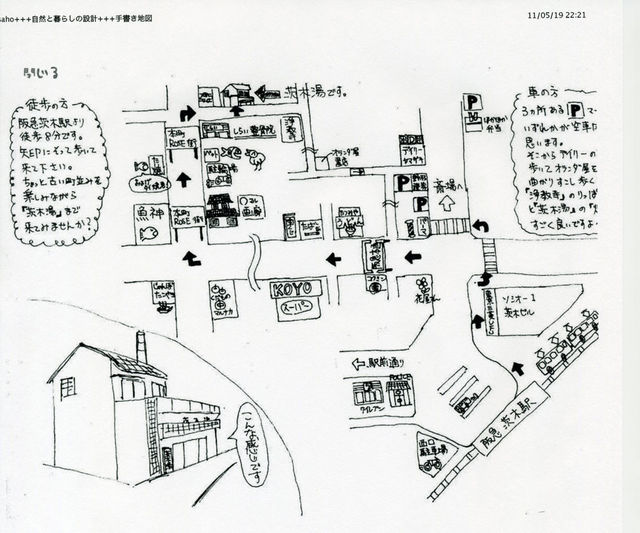 saho+++自然と暮らしの設計+++手書き地図
11/05/19 22:21
閉じる
徒歩の方
阪急茨木駅より
徒歩8分です。
矢印にそって歩いて
来て下さい。
ちょっと古い町並みを
楽しみながら
「茨木湯」まで
来てみませんか?
茨木湯です。
車の方
3ヵ所ある P で
いずれかが空車だ
思います。
そこからデイリーの
歩いてオランダ屋を
曲がりすこし歩く
「浄教寺」のりっぱ
ど茨木湯」の
すごく良いですよ
P
ほかほか
弁当
本町
ROSE街
しらい整骨院
浄教寺
オランダ屋
書店
デイリー
ヤマザキ
ペット
駐輪場
P
P
斎場へ
魚神
本町
ROSE街
KOYO
スーパー
マルナカ
花屋さん
ソシオ-1
茨木ビル
駅前通り
POLICE
西口
駐車場
阪急 茨木駅
こんな感じです